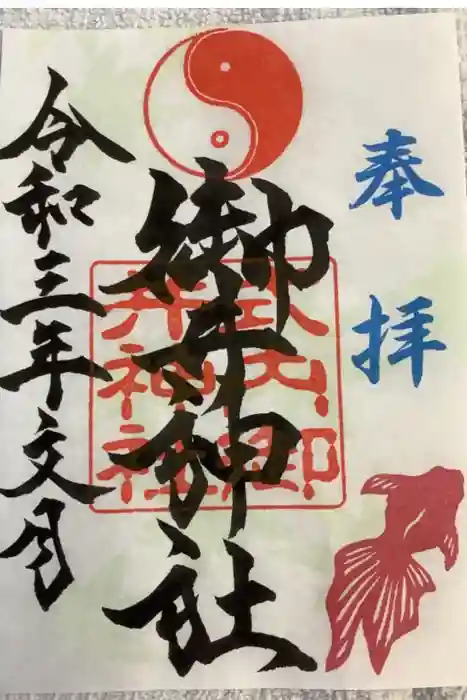 奉拝
御井神社
式内御
井神社
令和三年文月